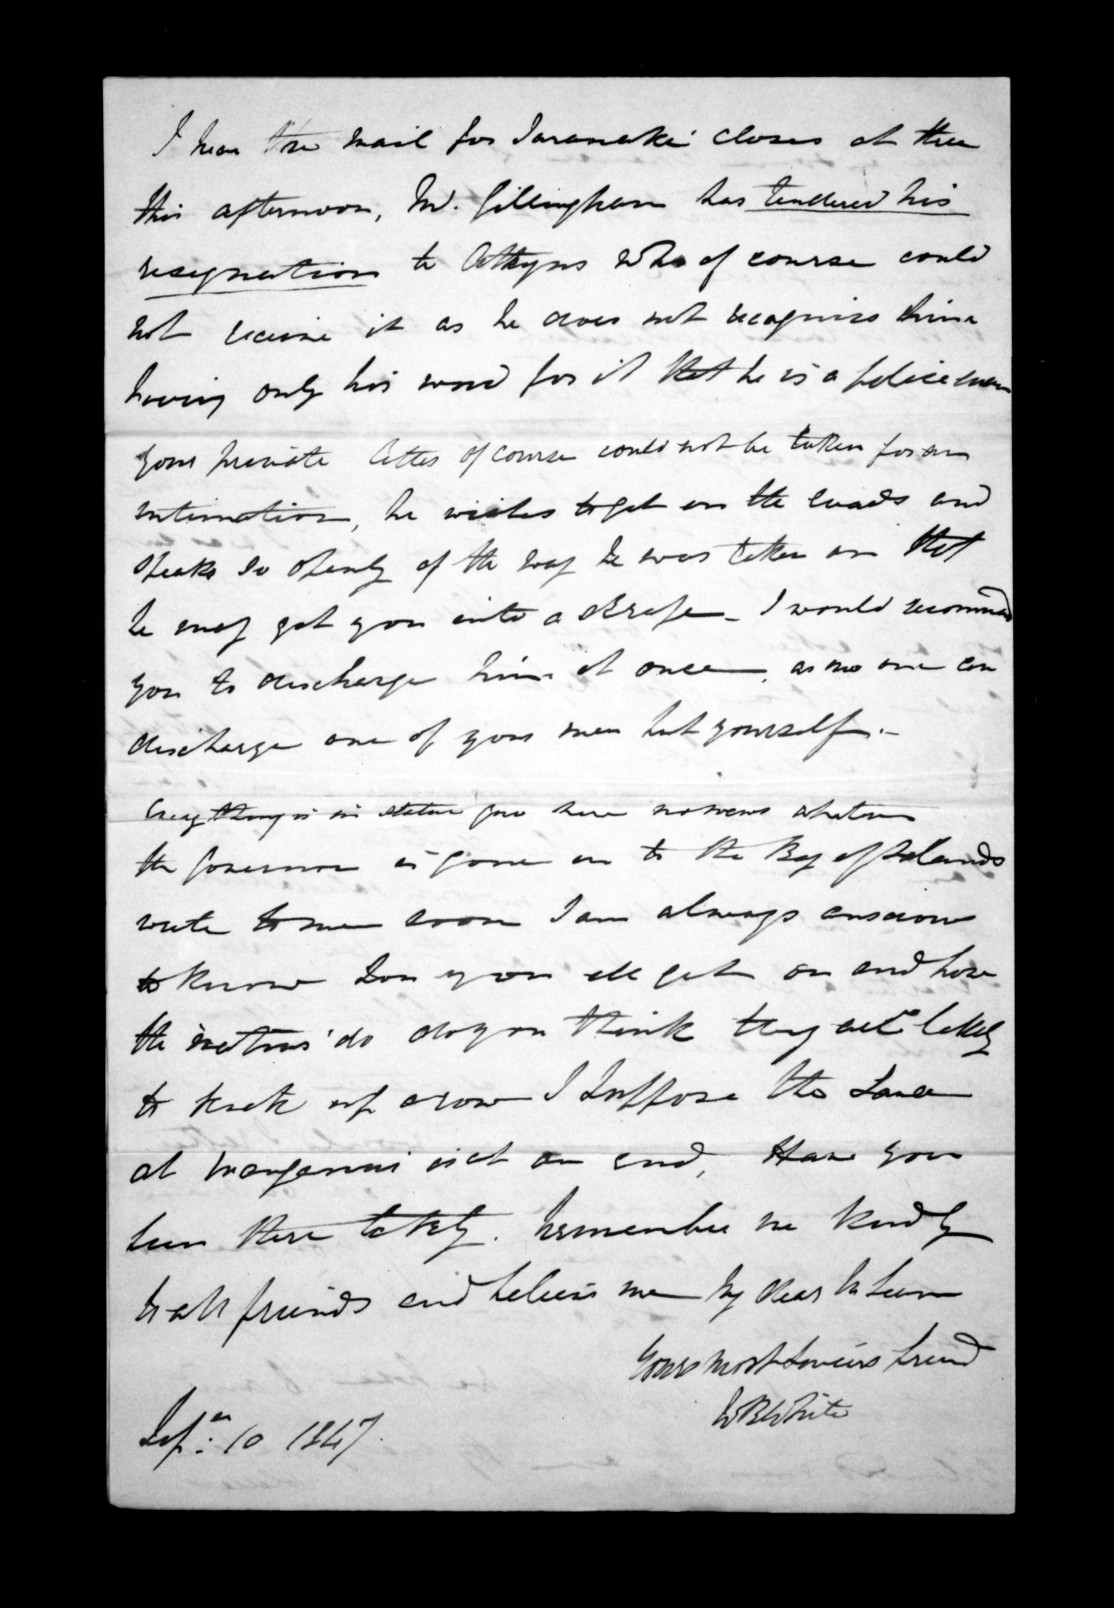 I hear the mail for Taranaki closes at three
this afternoon, Mr. Gillingham has tendered his
resignation to Atkyns who of course could
not receive it as he does not recognise him
having only his word for it that he is a policeman
your private letter of course could not be taken for an
intimation, he wishes to get on the roads and
speaks so openly of the way he was taken on that
he may get you into a scrape - I would recommend
you to discharge him at once, as no one can
discharge one of your men but yourself.-
Every thing is in statu quo here no news whatever
the Governor is gone on to the Bay of Islands
write to me soon I am always anxious
to know how you all get on and how
the natives do do you think they are likely
to kick up a row I suppose the
at Wanganui is at an end, Have you
been there lately. Remember me kindly
to all friends and believe me My dear McLean
Yours most sincere friend
W B White
Sepr. 10 1847.